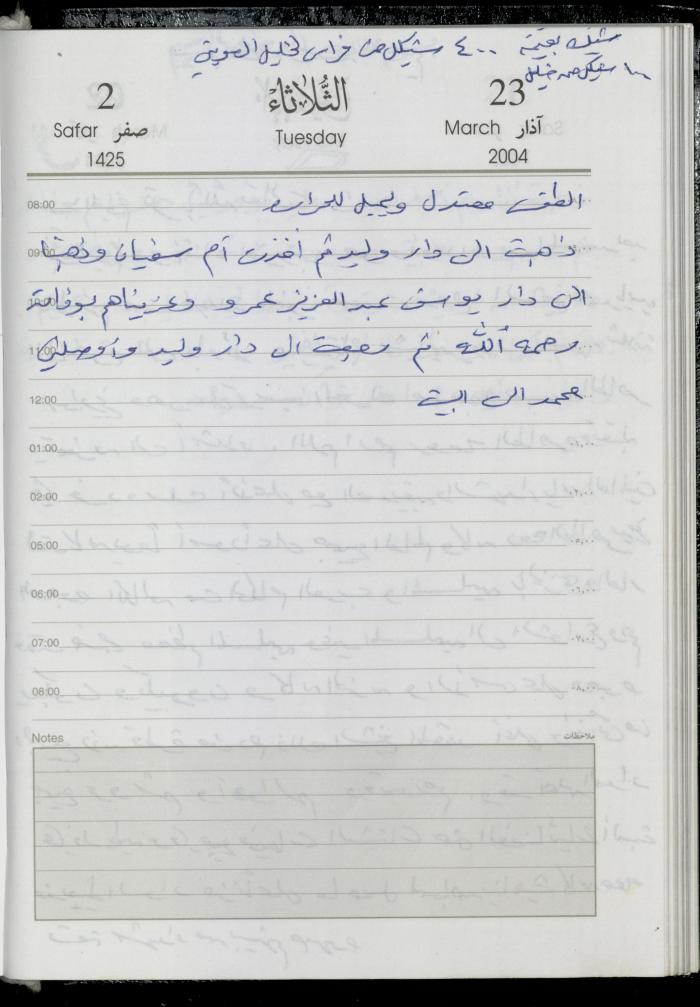 شيك بقيمة ٤٠٠ شيكل من فراس لخليل العويوي
١٠٠ شيكل من خليل
2 الثّلاثاء 23
Safar صفر Tuesday March آذار
1425 2004
08:00 الطقس معتدل ويميل للحرارة
09:00 ذهبت الى دار وليد ثم أخذت أم سفيان وذهبنا
10:00 الى دار يوسف عبد العزيز عمرو وعزيناهم بوفاته
11:00 رحمه الله ثم رجعت الى دار وليد وأوصلني
12:00 محمد الى البيت
01:00
02:00
05:00
06:00
07:00
08:00
Notes ملاحظات